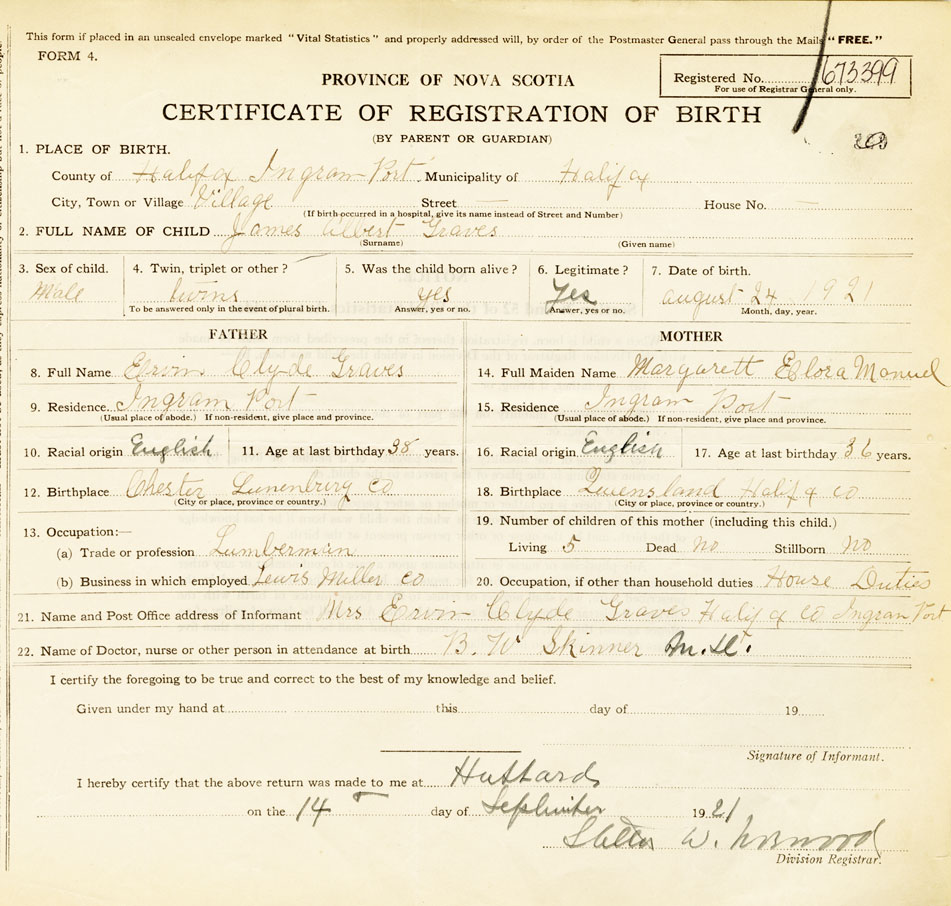 This form if placed in an unsealed envelope marked "Vital Statistics" and properly addressed will, by order of the Postmaster General pass through the Mails "FREE."
FORM 4.
Registered No. 673399
For use of Registrar General only.
PROVINCE OF NOVA SCOTIA
CERTIFICATE OF REGISTRATION OF BIRTH
(BY PARENT OR GUARDIAN)
1. PLACE OF BIRTH.
County of Halifax Ingram Port Municipality of Halifax
City, Town or Village Village Street — House No. —
(If birth occurred in a hospital, give its name instead of Street and Number)
2. FULL NAME OF CHILD James Albert Graves
(Surname) (Given name)
3. Sex of child. 4. Twin, triplet or other? 5. Was the child born alive? 6. Legitimate? 7. Date of birth.
Male twins yes Yes august 24 1921
To be answered only in the event of plural birth. Answer, yes or no. Answer, yes or no. Month, day, year.
FATHER MOTHER
8. Full Name Ervin Clyde Graves 14. Full Maiden Name Margarett Elora Manuel
9. Residence Ingram Port 15. Residence Ingram Port
(Usual place of abode.) If non-resident, give place and province. (Usual place of abode.) If non-resident, give place and province.
10. Racial origin English 11. Age at last birthday 38 years. 16. Racial origin English 17. Age at last birthday 36 years.
12. Birthplace Chester Lunenburg Co 18. Birthplace Queensland Halifax co
(City or place, province or country.) (City or place, province or country.)
13. Occupation:— 19. Number of children of this mother (including this child.)
(a) Trade or profession Lumberman Living 5 Dead No Stillborn No
(b) Business in which employed Lewis Miller Co 20. Occupation, if other than household duties House Duties
21. Name and Post Office address of Informant Mrs Ervin Clyde Graves Halifax Co Ingram Port
22. Name of Doctor, nurse or other person in attendance at birth B. W Skinner M.D.
I certify the foregoing to be true and correct to the best of my knowledge and belief.
Given under my hand at this day of 19
Signature of Informant.
I hereby certify that the above return was made to me at Hubbards
on the 14 day of September 1921
W. Norwood
Division Registrar.